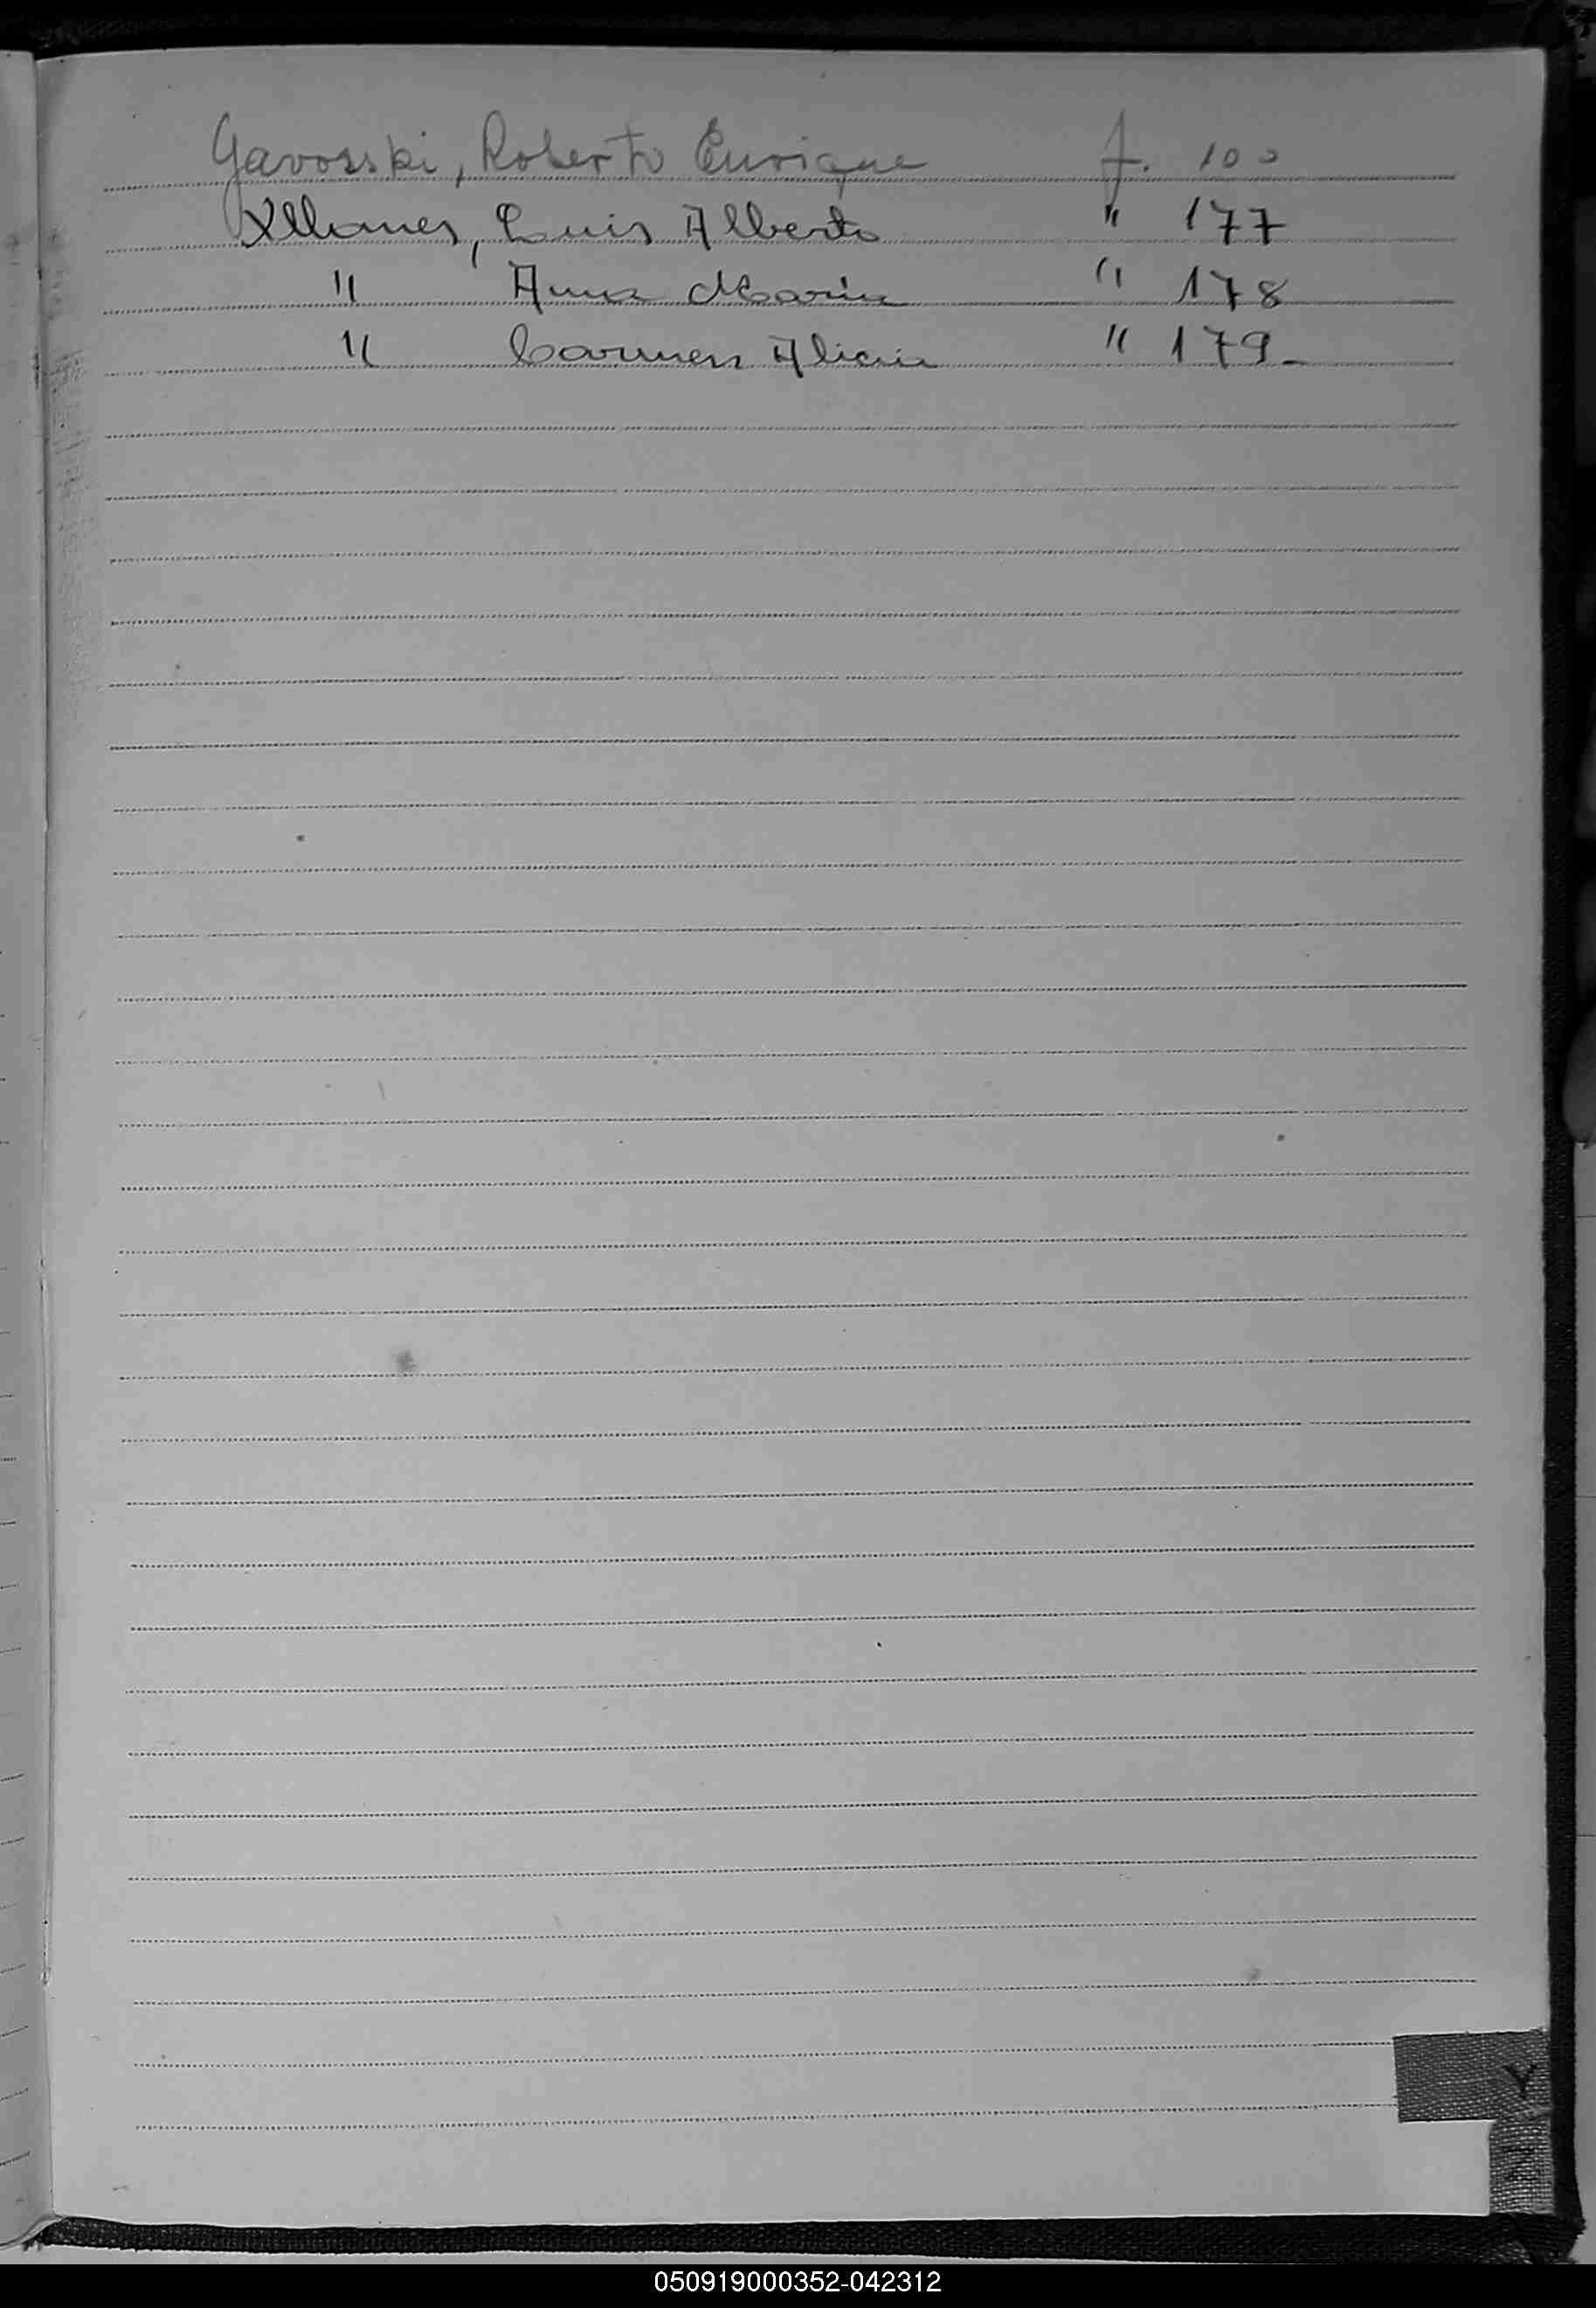 Yavosski, Roberto Enrique f. 100
Yllanes, Luis Alberto " 177
" " Ana Maria " 178
" " Carmen Alicia " 179-
Y
Z
050919000352-042312